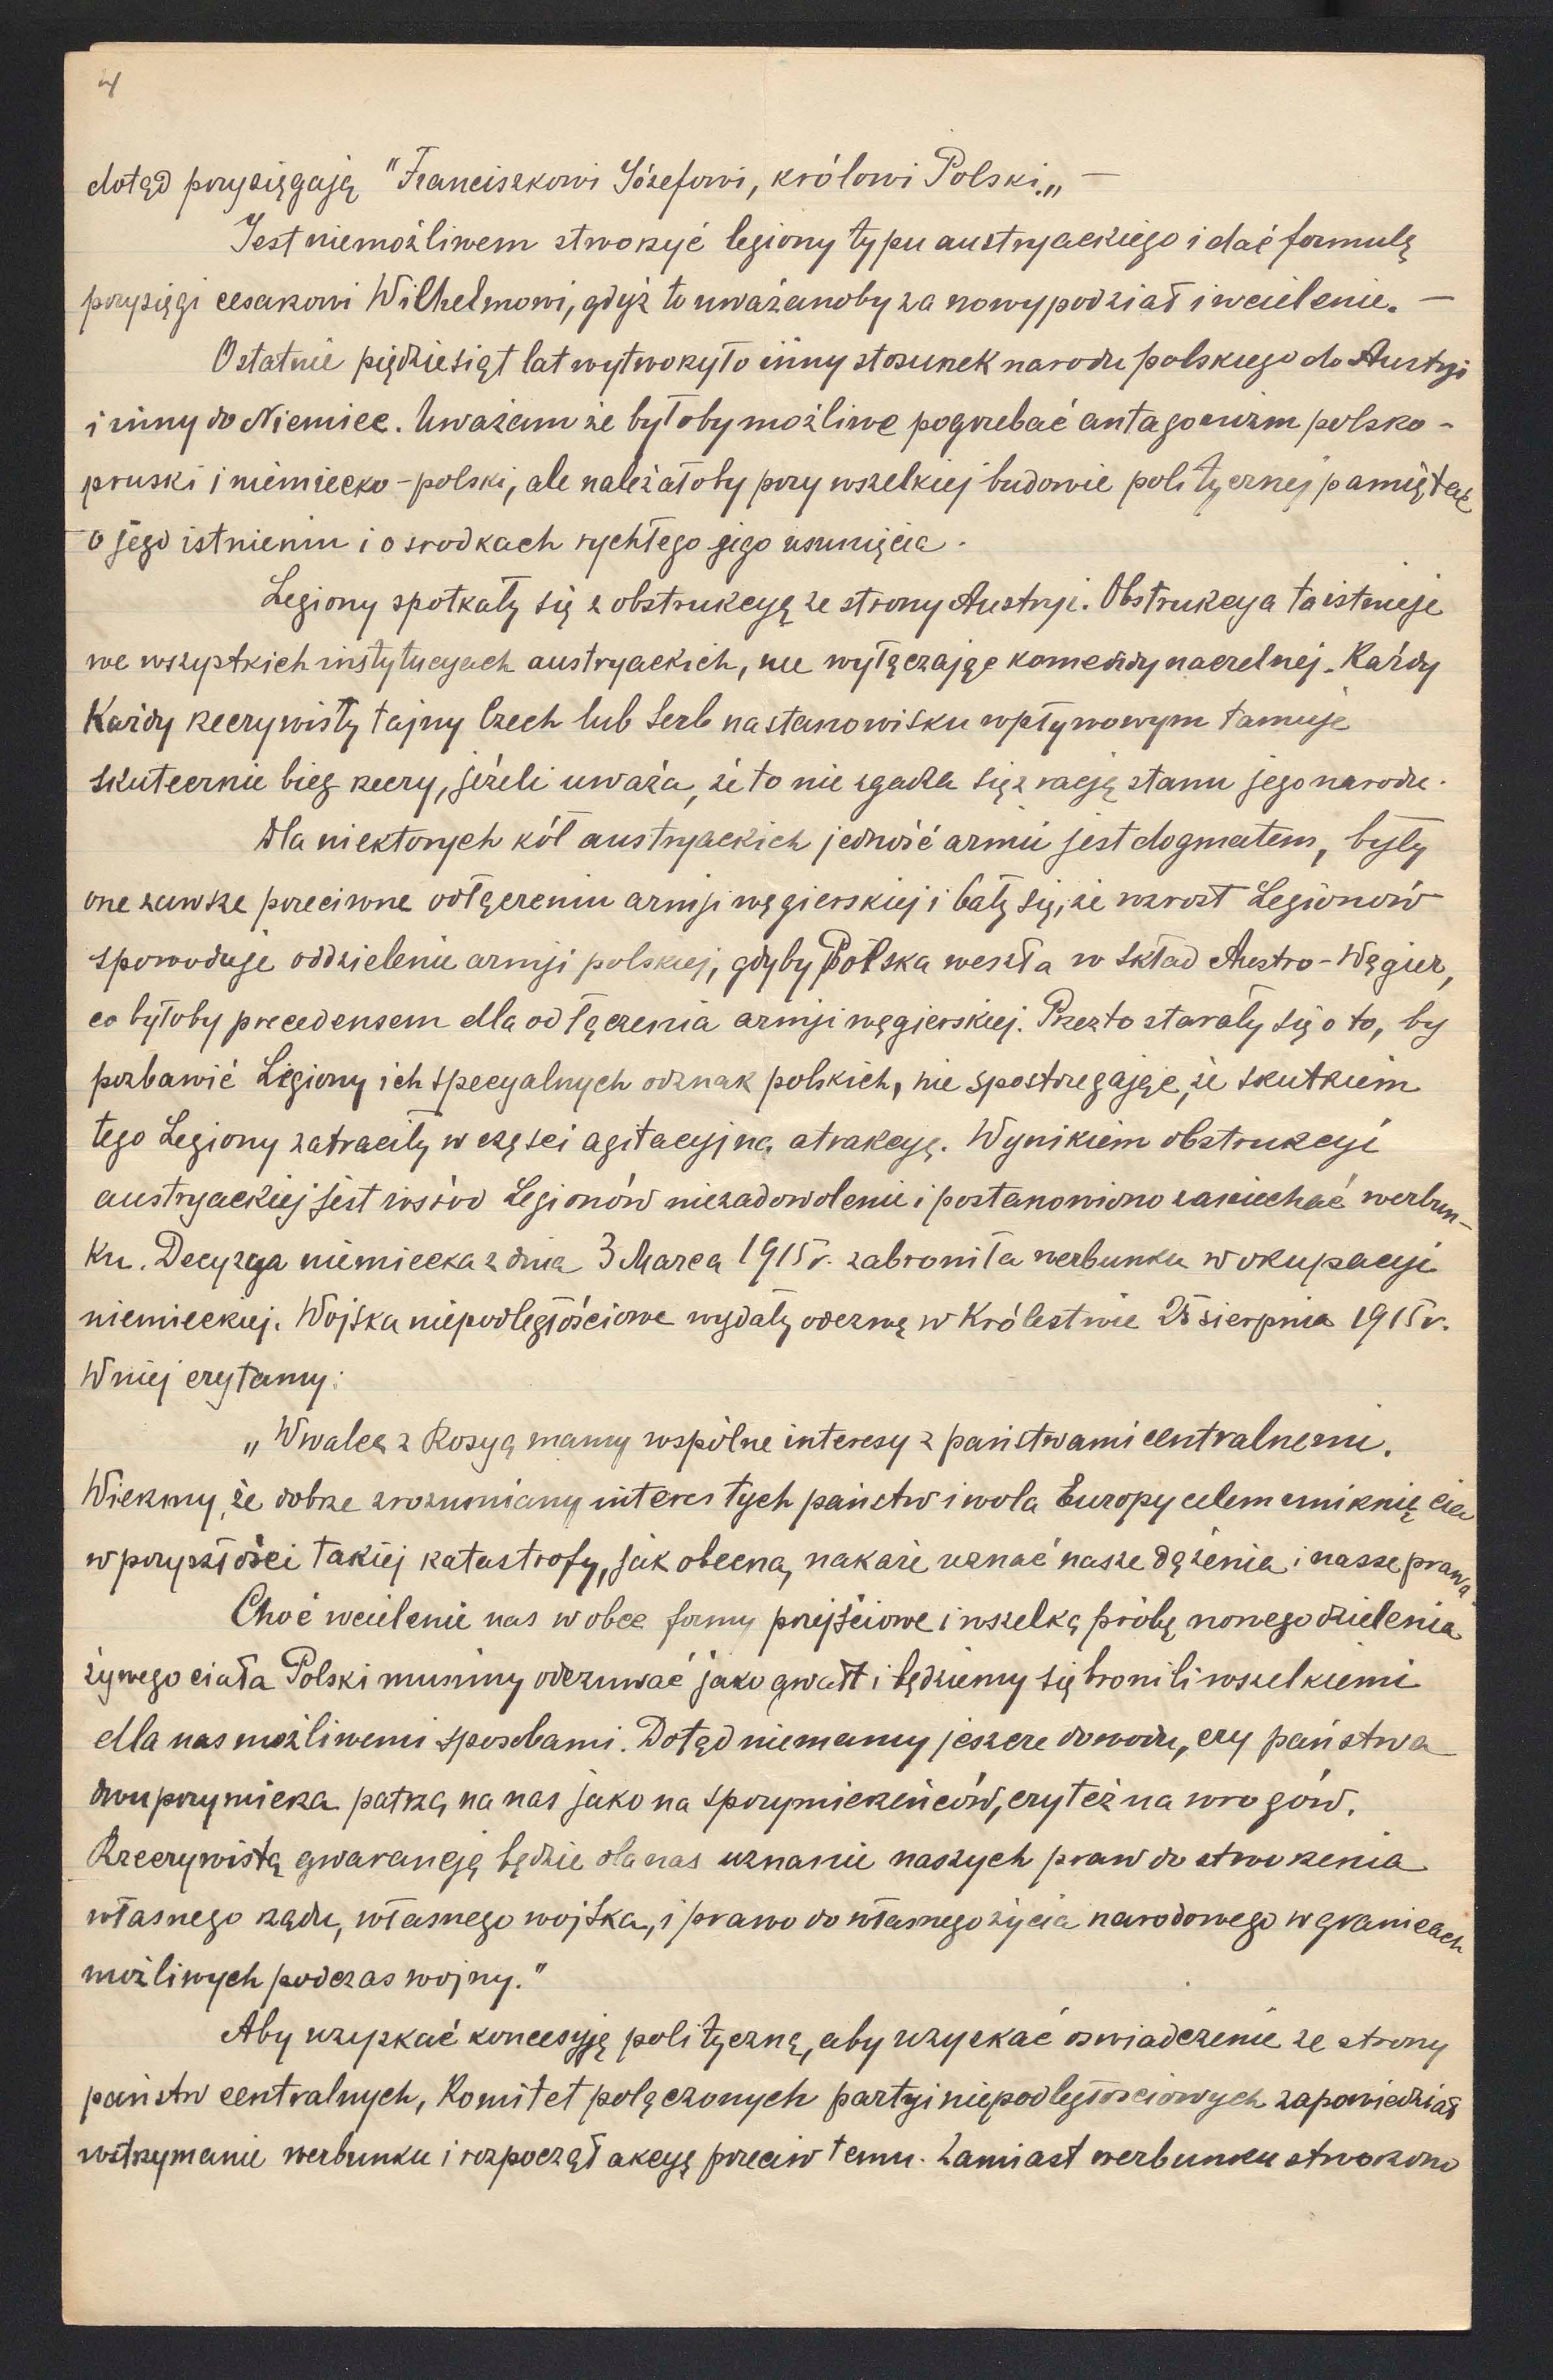 4
dotąd przysięgają "Franciszkowi Józefowi, królowi Polski„ —
Jest niemożliwem stworzyć legiony typu austryackiego i dać formułę
przysięgi cesarzowi Wilhelmowi, gdyż to uważanoby za nowy podział i wcielenie. —
Ostatnie piędziesiąt lat wytworzyło inny stosunek narodu polskiego do Austryi
i inny do Niemiec. Uważam że byłoby możliwe pogrzebać antagonizm polsko-
pruski i niemiecko-polski, ale należałoby przy wszelkiej budowie politycznej pamiętać
o jego istnieniu i o srodkach rychłego jego usunięcia.
Legiony spotkały się z obstrukcyą ze strony Austryi. Obstrukcya ta istnieje
we wszystkich instytucyach austryackich, nie wyłączając komendy naczelnej. Każdy
Każdy rzeczywisty tajny Czech lub Serb na stanowisku wpływowym tamuje
skutecznie bieg rzeczy, jeżeli uważa, że to nie zgadza się z racją stanu jego narodu.
Dla niektorych kół austryackich jedność armii jest dogmatem, były
one zawsze przeciwne odłączeniu armji węgierskiej i bały się, że wzrost Legionów
spowoduje oddzielenie armji polskiej, gdyby Polska weszła w skład Austro-Węgier,
co byłoby precedensem dla odłączenia armji węgierskiej. Przezto starały się o to, by
pozbawić Legiony ich specyalnych odznak polskich, nie spostrzegając, że skutkiem
tego Legiony zatraciły w częsci agitacyjną atrakcyę. Wynikiem obstrukcyi
austryackiej jest wśród Legionów niezadowolenie i postanowiono zaniechać werbun-
ku. Decyzya niemiecka z dnia 3 Marca 1915 r. zabroniła werbunku w okupacyi
niemieckiej. Wojska niepodległościowe wydały odezwę w Królestwie 25 sierpnia 1915 r.
W niej czytamy:
„W walce z Rosyą mamy wspólne interesy z państwami centralnemi.
Wierzmy, że dobrze zrozumiany interes tych państw i wola Europy celem uniknięcia
w przyszłości takiej katastrofy, jak obecna, nakaże uznać nasze dążenia i nasze prawa.
Choć wcielenie nas w obce formy przejściowe i wszelką próbę nowego dzielenia
żywego ciała Polski musimy odczuwać jako gwałt i będziemy się bronili wszelkiemi
dla nas możliwemi sposobami. Dotąd niemamy jeszcze dowodu, czy państwa
dwuprzymierza patrzą na nas jako na sprzymierzeńców, czy też na wrogów.
Rzeczywistą gwarancją będzie dla nas uznanie naszych praw do stworzenia
własnego rządu, własnego wojska, i prawo do własnego życia narodowego w granicach
możliwych podczas wojny."
Aby uzyskać koncesyję polityczną, aby uzyskać oswiadczenie ze strony
państw centralnych, Komitet połączonych partyi niepodległosciowych zapowiedział
wstrzymanie werbunku i rozpoczął akcyę przeciw temu. Zamiast werbunku stworzono